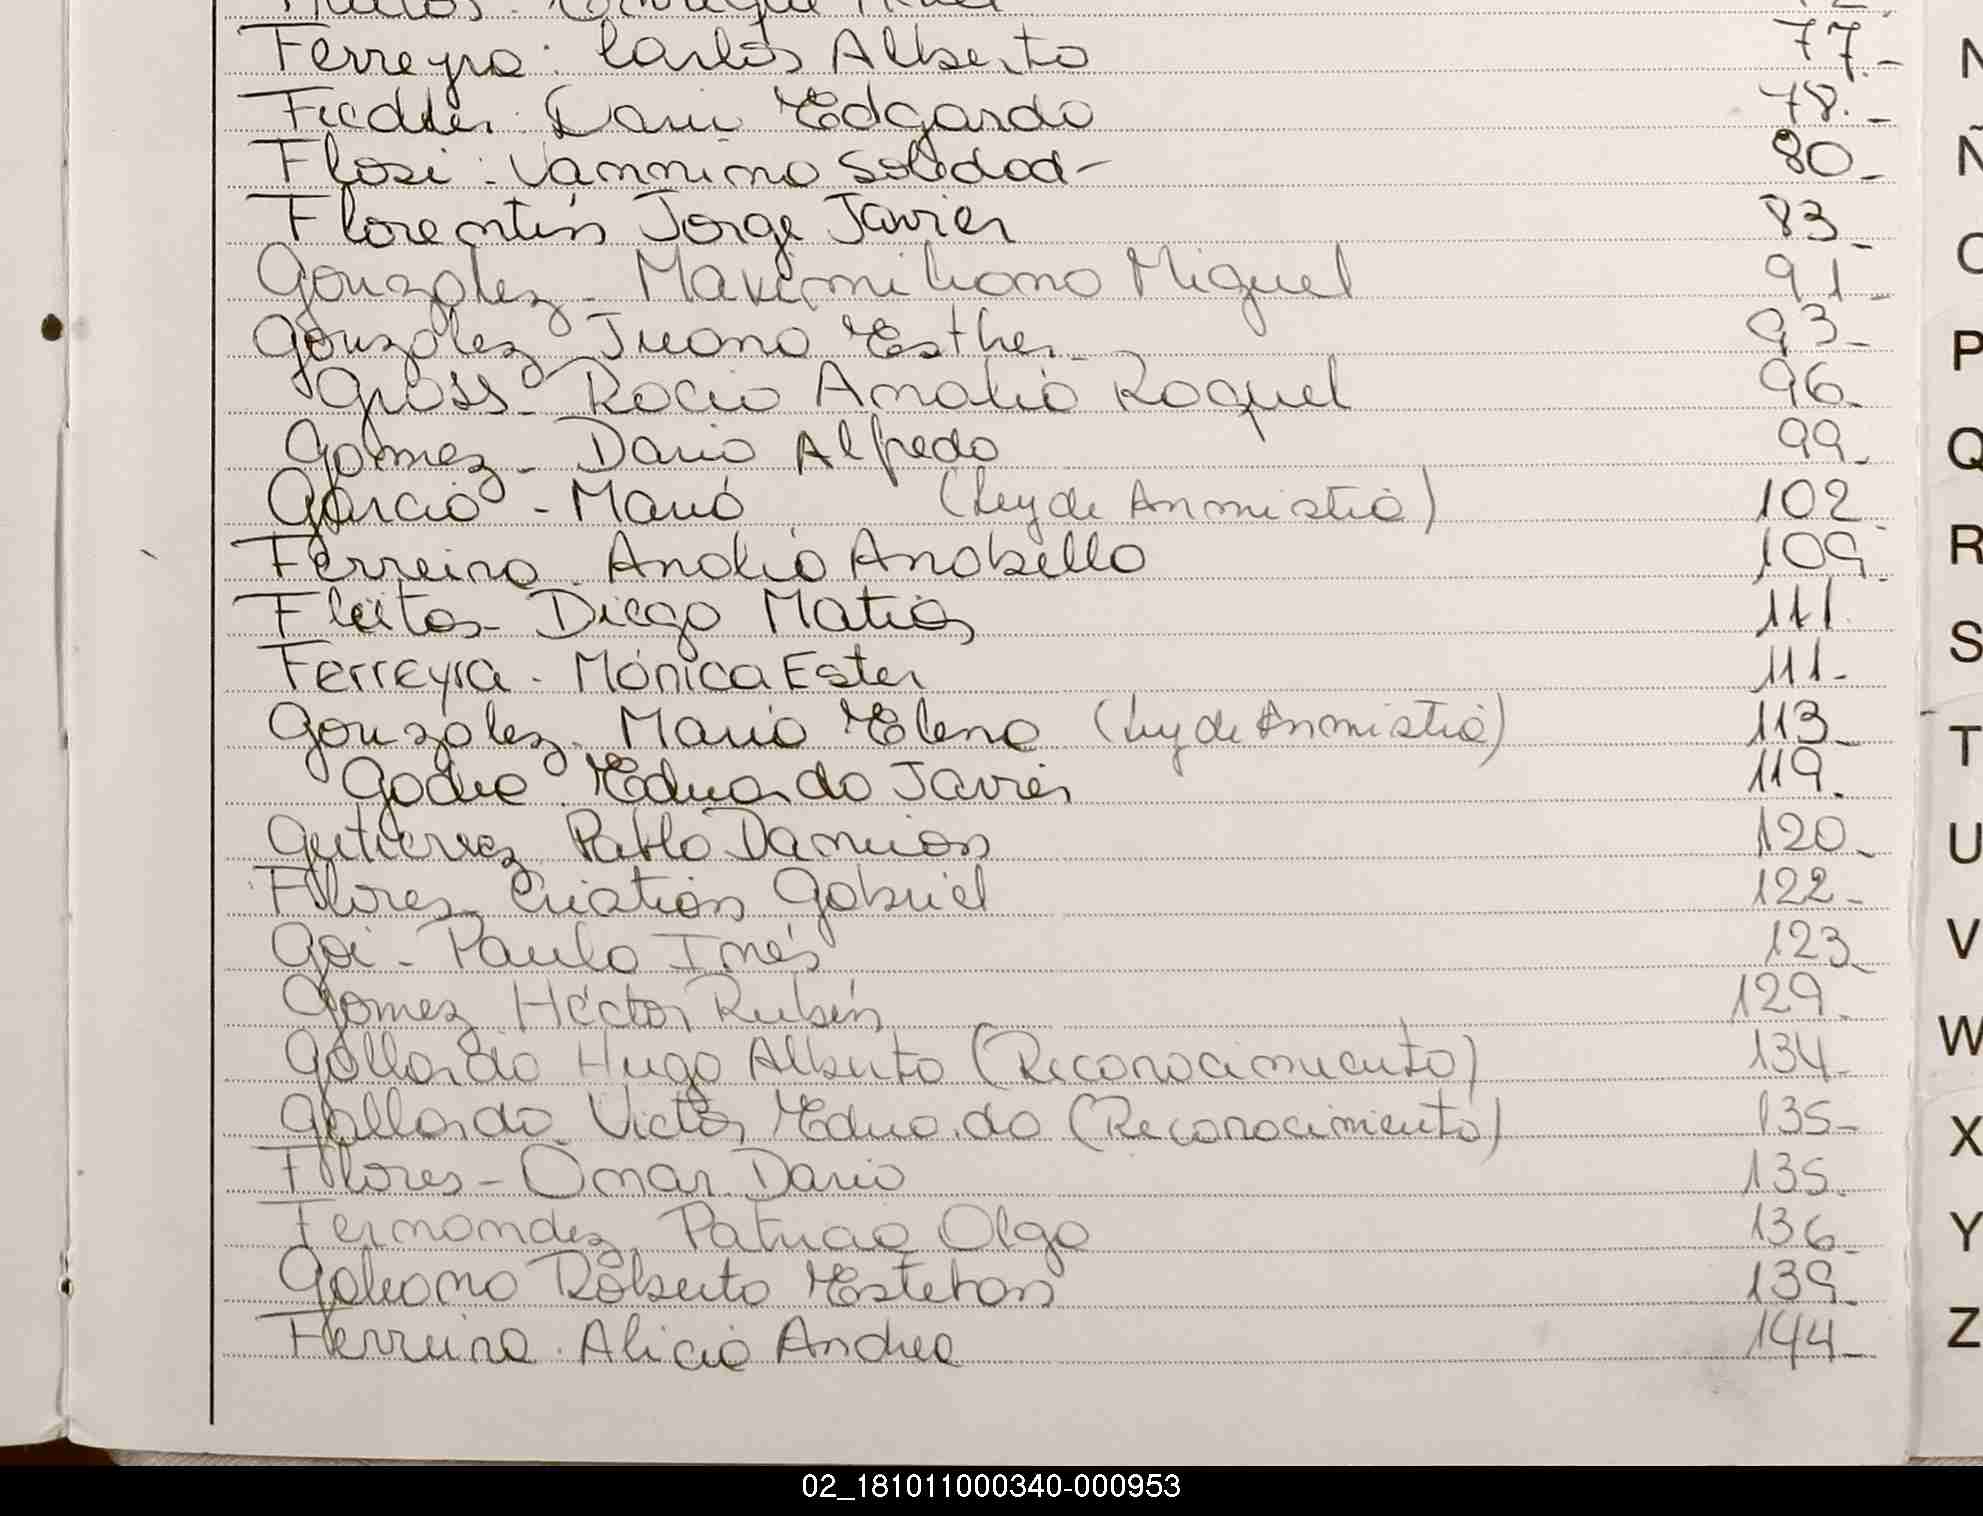 Ferreyra: Carlos Alberto 77.-
Fiedler: Dani Edgardo 78.-
Flosi: Vannina Soledad- 80-
Florentín Jorge Javier 83-
Gonzalez- Maximiliano Miguel 91-
Gonzalez Juana Esther- 93-
Gross- Rocio Amalia Raquel 96-
Gomez- Dario Alfredo 99-
Garcia - Maria (Ley de Anmistia) 102-
Ferreira. Analia Anabella 109-
Fleitas- Diego Matias 111
Ferreyra- Mónica Ester 111-
González. Maria Elena (Ley de Anmistia) 113-
Godre Eduardo Javier 119.
Gutierrez Pablo Damian 120-
Flores Cristian Gabriel 122-
Goi- Paula Inés 123-
Gomez Héctor Rubén 129-
Gallardo Hugo Alberto (Reconocimiento) 134-
Gallardo Victor Eduardo (Reconocimiento) 135-
Flores- Omar Dario 135-
Fernandez. Patricia Olga 136-
Galeano Roberto Esteban 139-
Ferreira. Alicia Andrea 144-
N
Ñ
O
P
Q
R
S
T
U
V
W
X
Y
Z
02_181011000340-000953